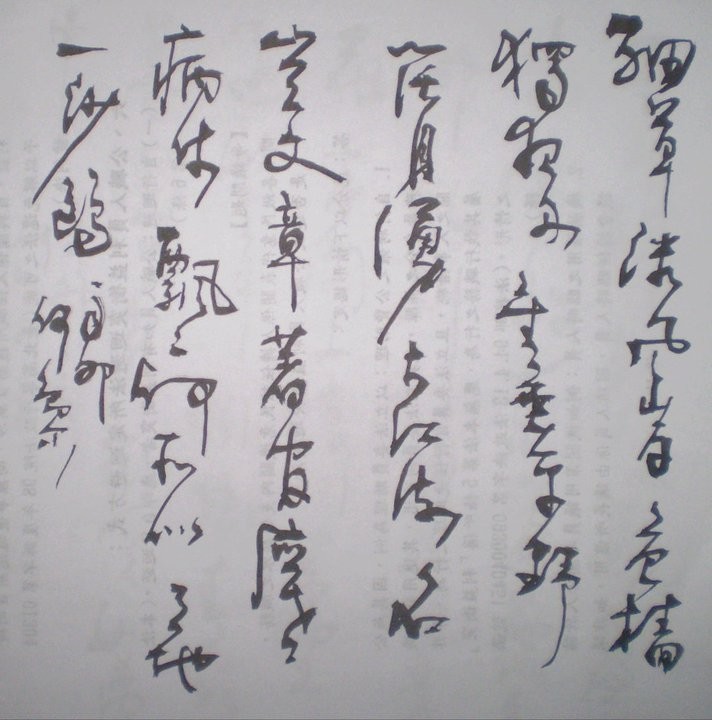 細草微風岸危檣
獨夜舟星垂平野
闊月湧大江流名
豈文章著官應老
病休飄々何所似天地
一沙鷗